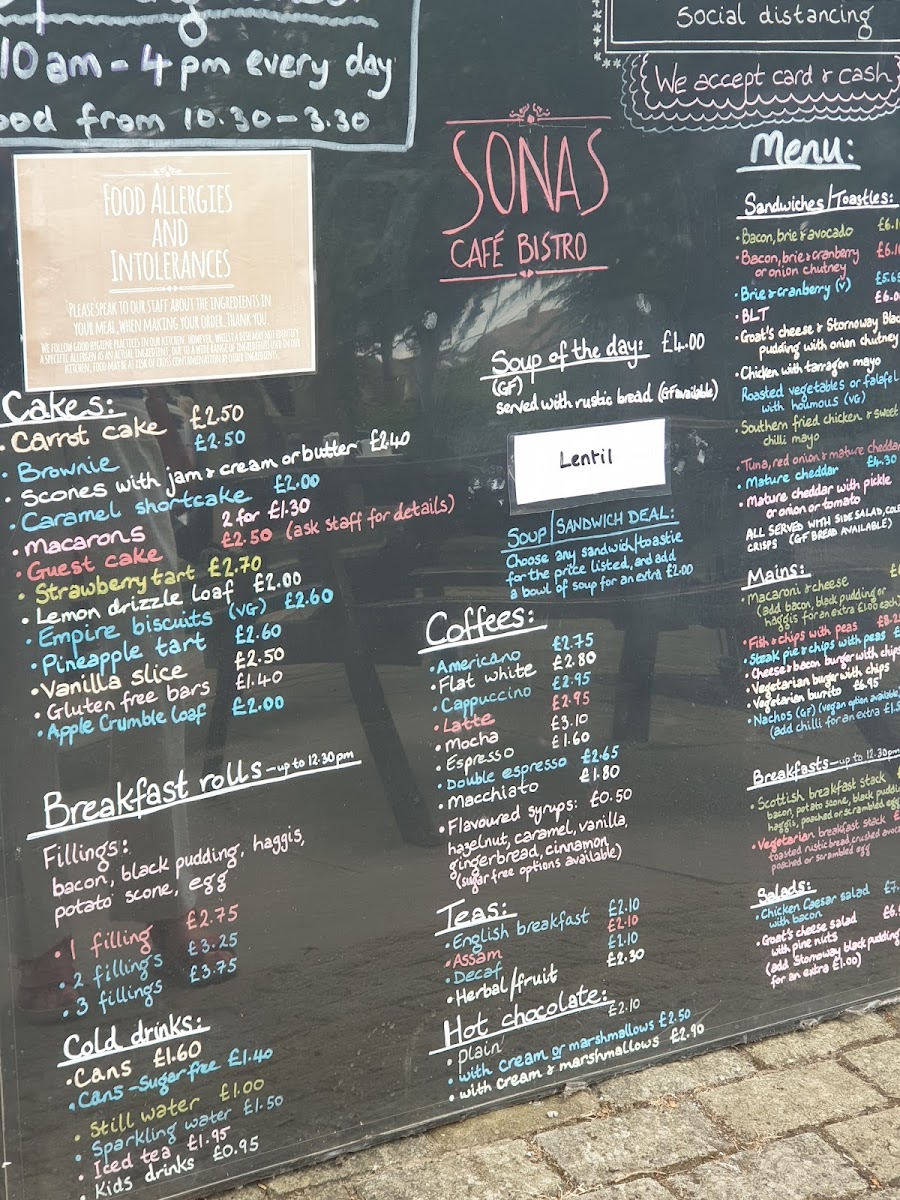 10am - 4pm every day
food from 10.30 - 3.30
FOOD ALLERGIES
AND
INTOLERANCES
PLEASE SPEAK TO OUR STAFF ABOUT THE INGREDIENTS IN
YOUR MEAL, WHEN MAKING YOUR ORDER. THANK YOU.
WE FOLLOW GOOD HYGIENE PRACTICES IN OUR KITCHEN, HOWEVER, WHILST A DISH MAY NOT IDENTIFY
A SPECIFIC ALLERGEN AS AN ACTUAL INGREDIENT, DUE TO A WIDE RANGE OF INGREDIENTS USED IN OUR
KITCHEN, FOOD MAY BE AT RISK OF CROSS CONTAMINATION BY OTHER INGREDIENTS.
Cakes:
• Carrot cake £2.50
• Brownie £2.50
• Scones with jam & cream or butter £2.40
• Caramel shortcake £2.00
• Macarons 2 for £1.30
• Guest cake £2.50 (ask staff for details)
• Strawberry tart £2.70
• Lemon drizzle loaf £2.00
• Empire biscuits (VG) £2.60
• Pineapple tart £2.60
• Vanilla slice £2.50
• Gluten free bars £1.40
• Apple Crumble loaf £2.00
Breakfast rolls - up to 12.30pm
Fillings:
bacon, black pudding, haggis,
potato scone, egg
• 1 filling £2.75
• 2 fillings £3.25
• 3 fillings £3.75
Cold drinks:
• Cans £1.60
• Cans - Sugar free £1.40
• Still water £1.00
• Sparkling water £1.50
• Iced tea £1.95
• Kids drinks £0.95
SONAS
CAFÉ BISTRO
Soup of the day: £4.00
(GF)
served with rustic bread (GF available)
Lentil
SOUP/SANDWICH DEAL:
Choose any sandwich/toastie
for the price listed, and add
a bowl of soup for an extra £2.00
Coffees:
• Americano £2.75
• Flat white £2.80
• Cappuccino £2.95
• Latte £2.95
• Mocha £3.10
• Espresso £1.60
• Double espresso £2.65
• Macchiato £1.80
• Flavoured syrups: £0.50
hazelnut, caramel, vanilla,
gingerbread, cinnamon
(sugar free options available)
Teas:
• English breakfast £2.10
• Assam £2.10
• Decaf £2.10
• Herbal/fruit £2.30
Hot chocolate:
• plain £2.10
• with cream or marshmallows £2.50
• with cream & marshmallows £2.90
Social distancing
We accept card & cash
Menu:
Sandwiches/Toasties:
• Bacon, brie & avocado
• Bacon, brie & cranberry
or onion chutney
• Brie & cranberry (V)
• BLT
• Goat's cheese & Stornoway
pudding with onion chutney
• Chicken with tarragon mayo
Roasted vegetables or falafel
with houmous (VG)
• Southern fried chicken & sweet
chilli mayo
• Tuna, red onion & mature cheddar
• Mature cheddar £4.30
• Mature cheddar with pickle
or onion or tomato
ALL SERVED WITH SIDE SALAD,
CRISPS (GF BREAD AVAILABLE)
Mains:
• Macaroni & cheese
(add bacon, black pudding or
haggis for an extra £1.00 each)
• Fish & chips with peas
• Steak pie & chips with peas
• Cheese & bacon burger with chips
• Vegetarian burger with chips
• Vegetarian burrito £6.95
• Nachos (GF) (vegan option available)
(add chilli for an extra
Breakfasts - up to 12.30pm
• Scottish breakfast stack
bacon, potato scone, black
haggis, poached or scrambled egg
• Vegetarian breakfast stack
toasted rustic bread, crushed
poached or scrambled egg
Salads:
• Chicken Caesar salad
with bacon
• Goat's cheese salad
with pine nuts
(add Stornoway black pudding
for an extra £1.00)